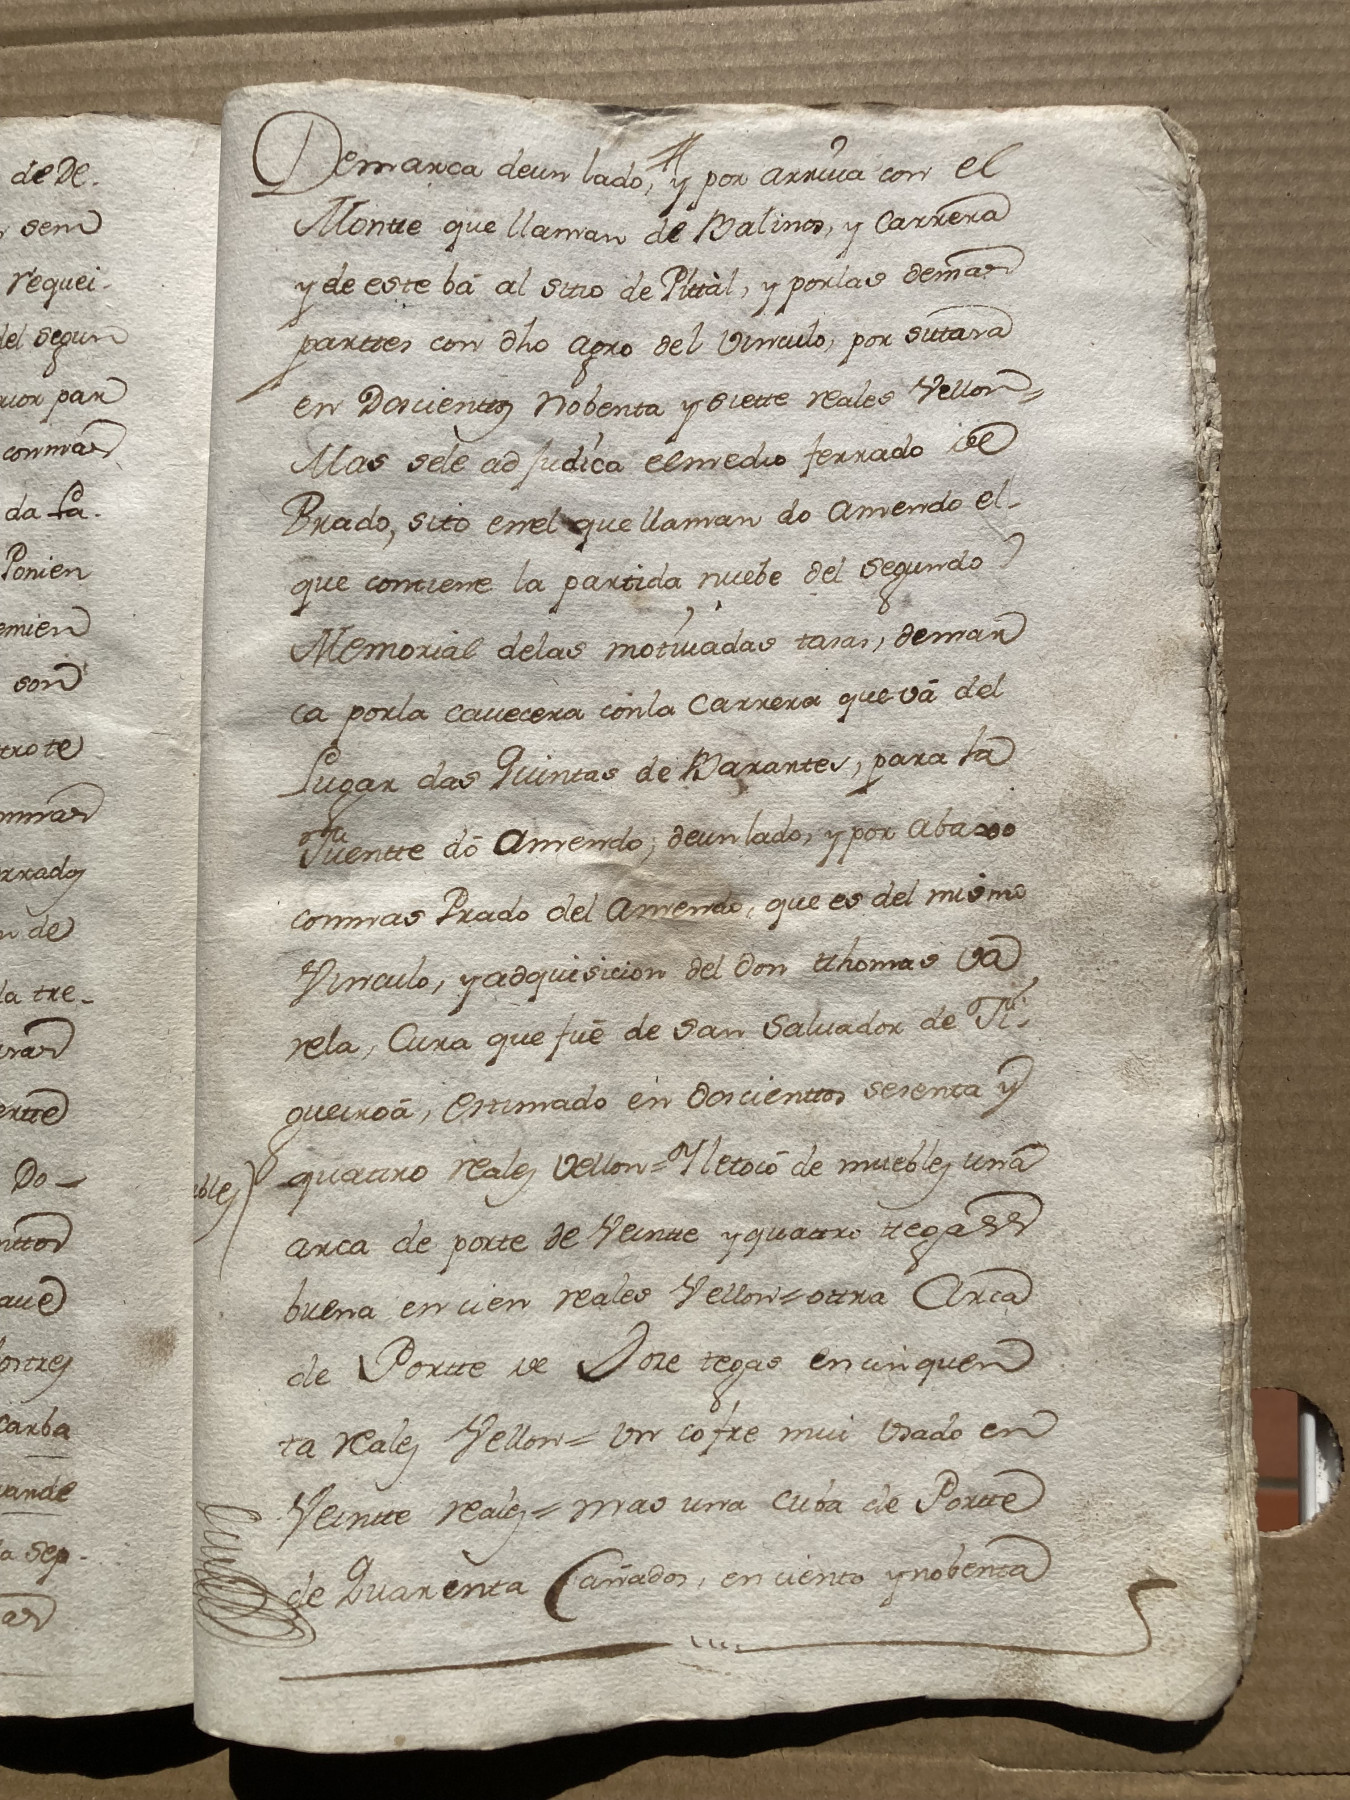 de De-
sem
requei-
del segun
rior par
conmas
da fa-
Ponien
emien
son
trote
conmas
errados
n de
la tre-
erte
Do-
anttos
aue
lostres
carba
uande
la sep-
Demarca deun lado, y por arriua con el
Montte que llaman de Balinos, y Carrera
y de este bá al sitio de Pittàl, y porlas demas
parttes con dho agro del Vinculo, por sutasa
en Doscienttos Nobenta y siette reales Vellon=
Mas sele adjudica elmedio ferrado de
Prado, sito enel que llaman do Amendo el-
que contiene la partida nuebe del segundo
Memorial delas motiuadas tasas, demar
ca porla cauecera conla Carrera que vá del
Lugar das Quintas de Barantes, para la
Fuentte dó Amendo; deun lado, y por abaxo
conmas Prado del Amendo, que es del mismo
Vinculo, y adquisicion del don tthomas Va
rela, Cura que fuè de san Saluador de Fi-
gueiroá, estimado en doscienttos sesenta y
quattro reales vellon= Yletocó de muebles una
arca de porte de Veintte y quattro tegas
buena en cien reales Vellon= ottra Arca
de Portte de Doze tegas en cinquen
ta reales Vellon= Un cofre mui Usado en
Veintte reales= mas una cuba de Portte
de Quarènta Cañados, en ciento y nobenta